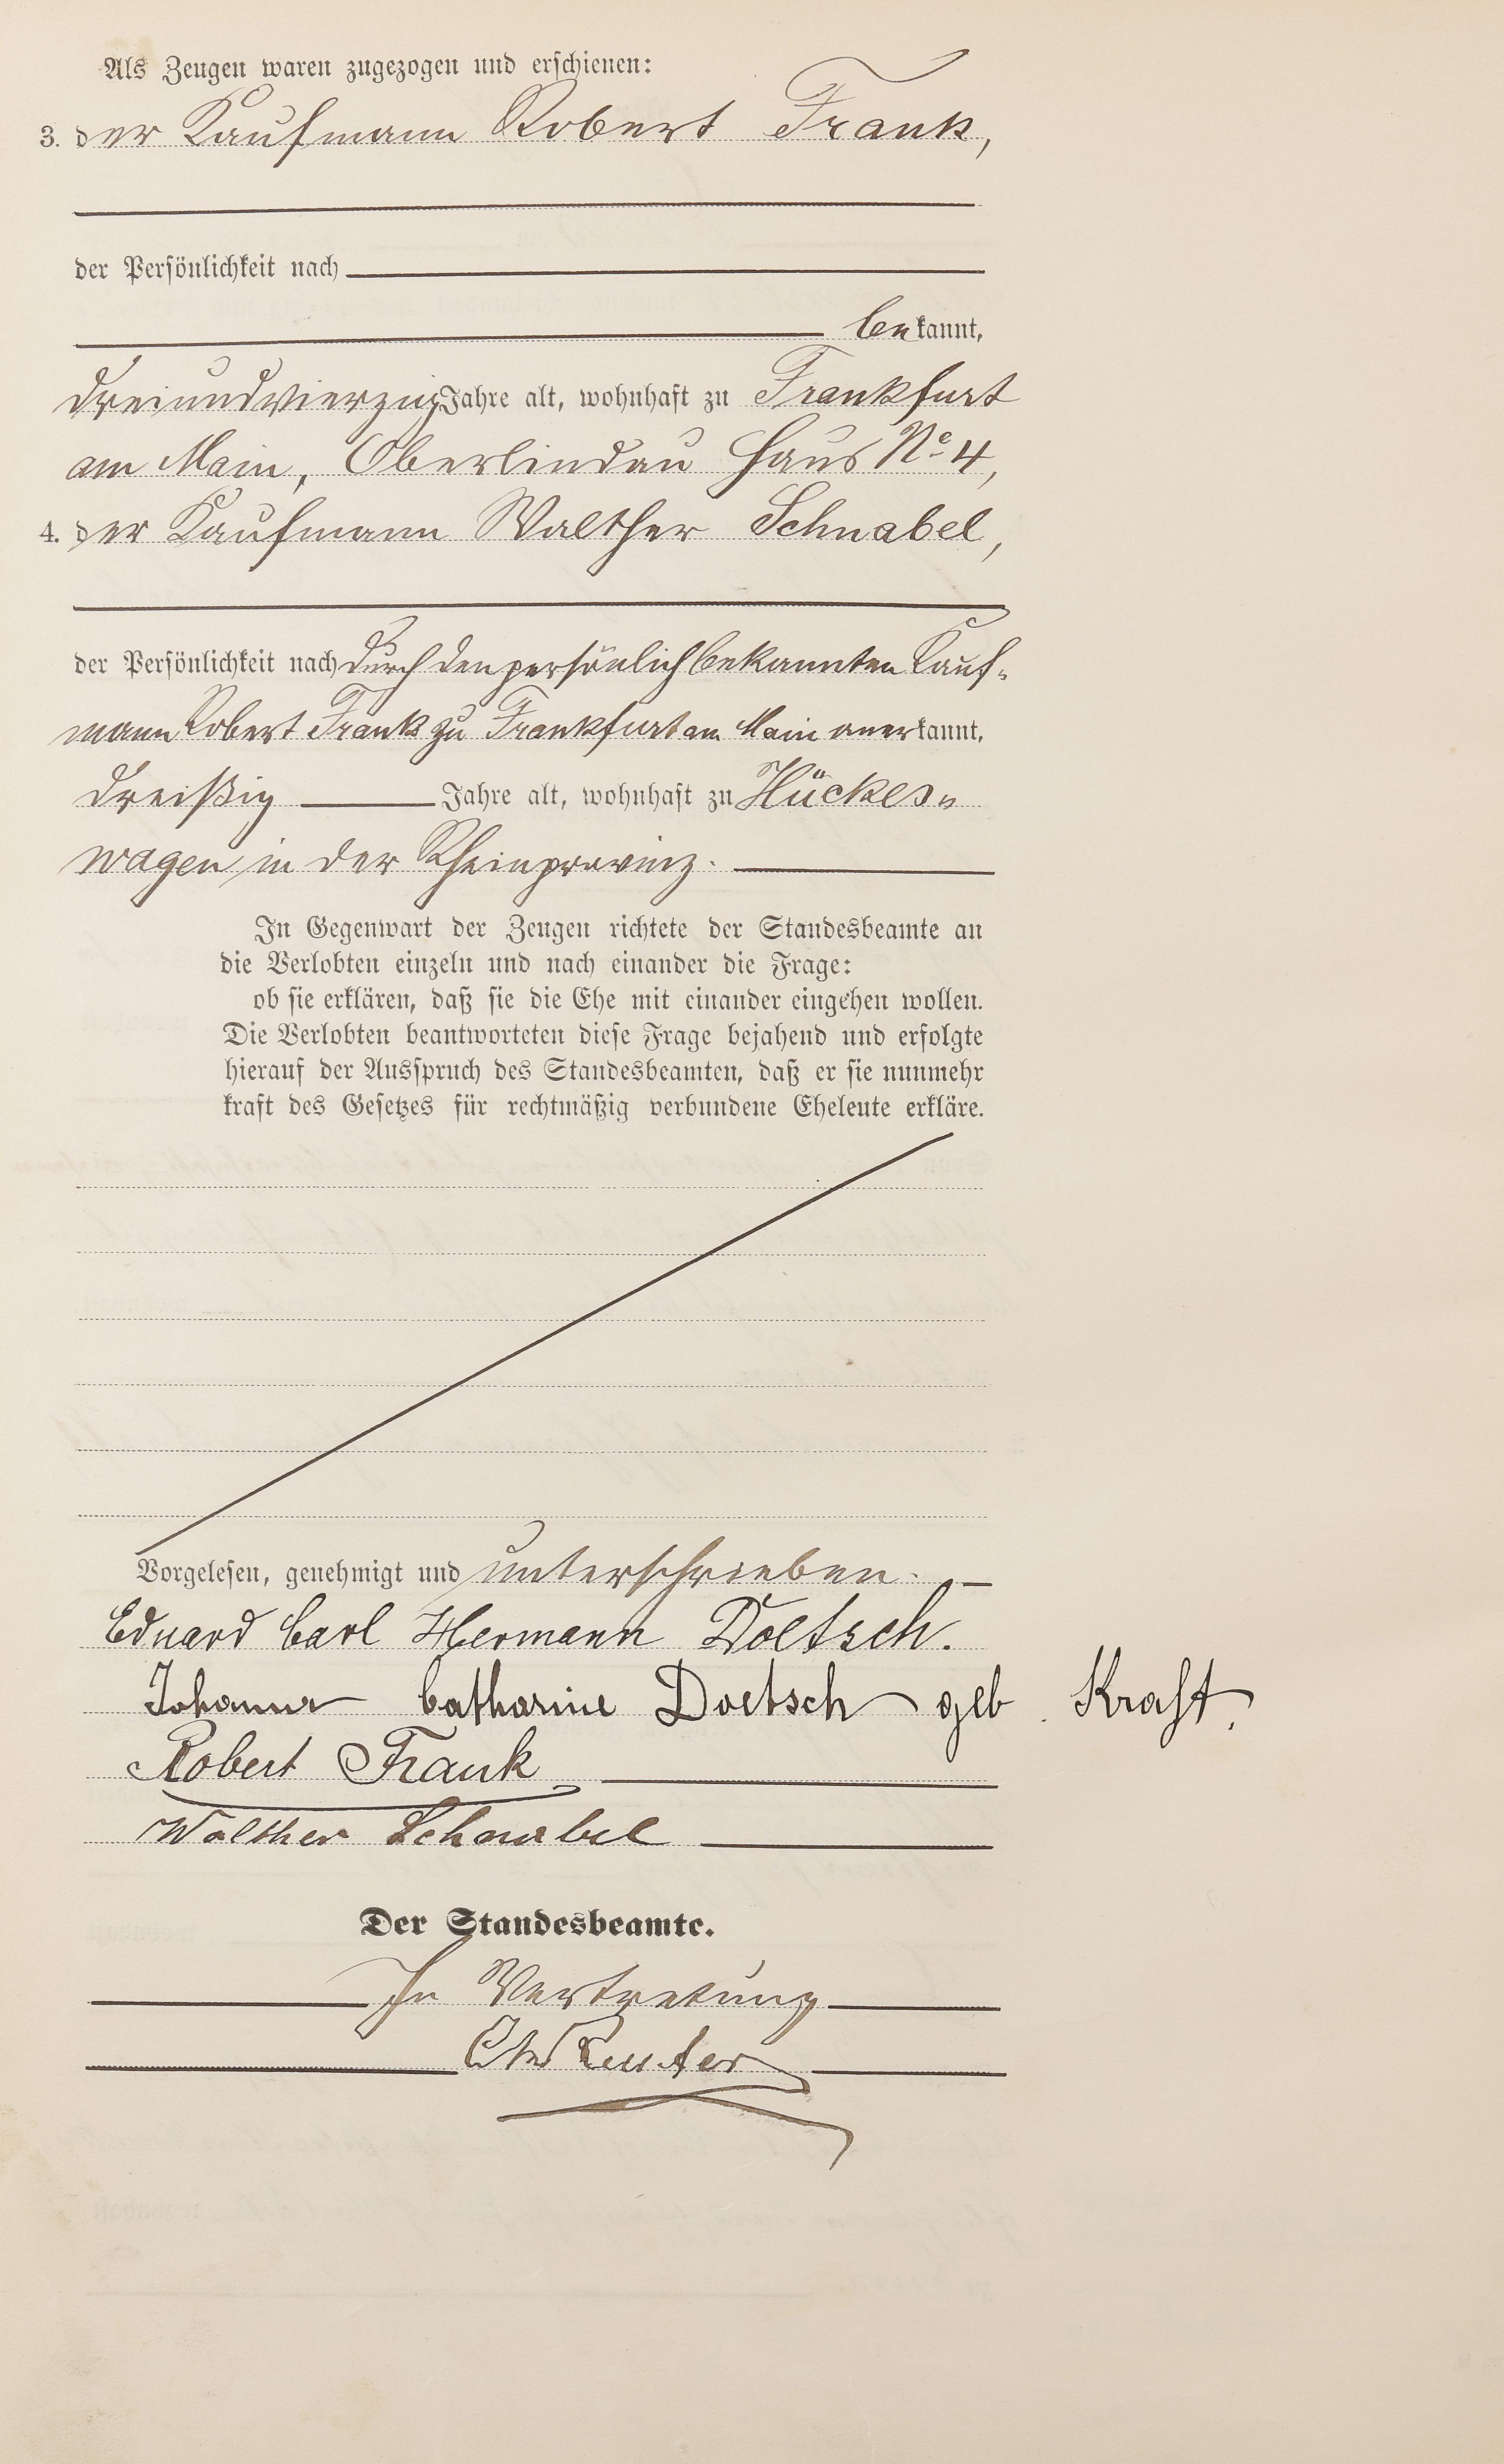 Als Zeugen waren zugezogen und erschienen:
3. der Kaufmann Robert Frank,
der Persönlichkeit nach
bekannt,
dreiundvierzig Jahre alt, wohnhaft zu Frankfurt
am Main, Oberlindau Haus No 4,
4. der Kaufmann Walther Schnabel,
der Persönlichkeit nach durch den persönlich bekannten Kauf-
mann Robert Frank zu Frankfurt am Main anerkannt,
dreißig Jahre alt, wohnhaft zu Hückes-
wagen in der Rheinprovinz.
In Gegenwart der Zeugen richtete der Standesbeamte an
die Verlobten einzeln und nach einander die Frage:
ob sie erklären, daß sie die Ehe mit einander eingehen wollen.
Die Verlobten beantworteten diese Frage bejahend und erfolgte
hierauf der Ausspruch des Standesbeamten, daß er sie nunmehr
kraft des Gesetzes für rechtmäßig verbundene Eheleute erkläre.
Vorgelesen, genehmigt und unterschrieben.
Eduard Carl Hermann Doetsch.
Johanna Catharine Doetsch geb. Kraft.
Robert Frank
Walther Schnabel
Der Standesbeamte.
In Vertretung